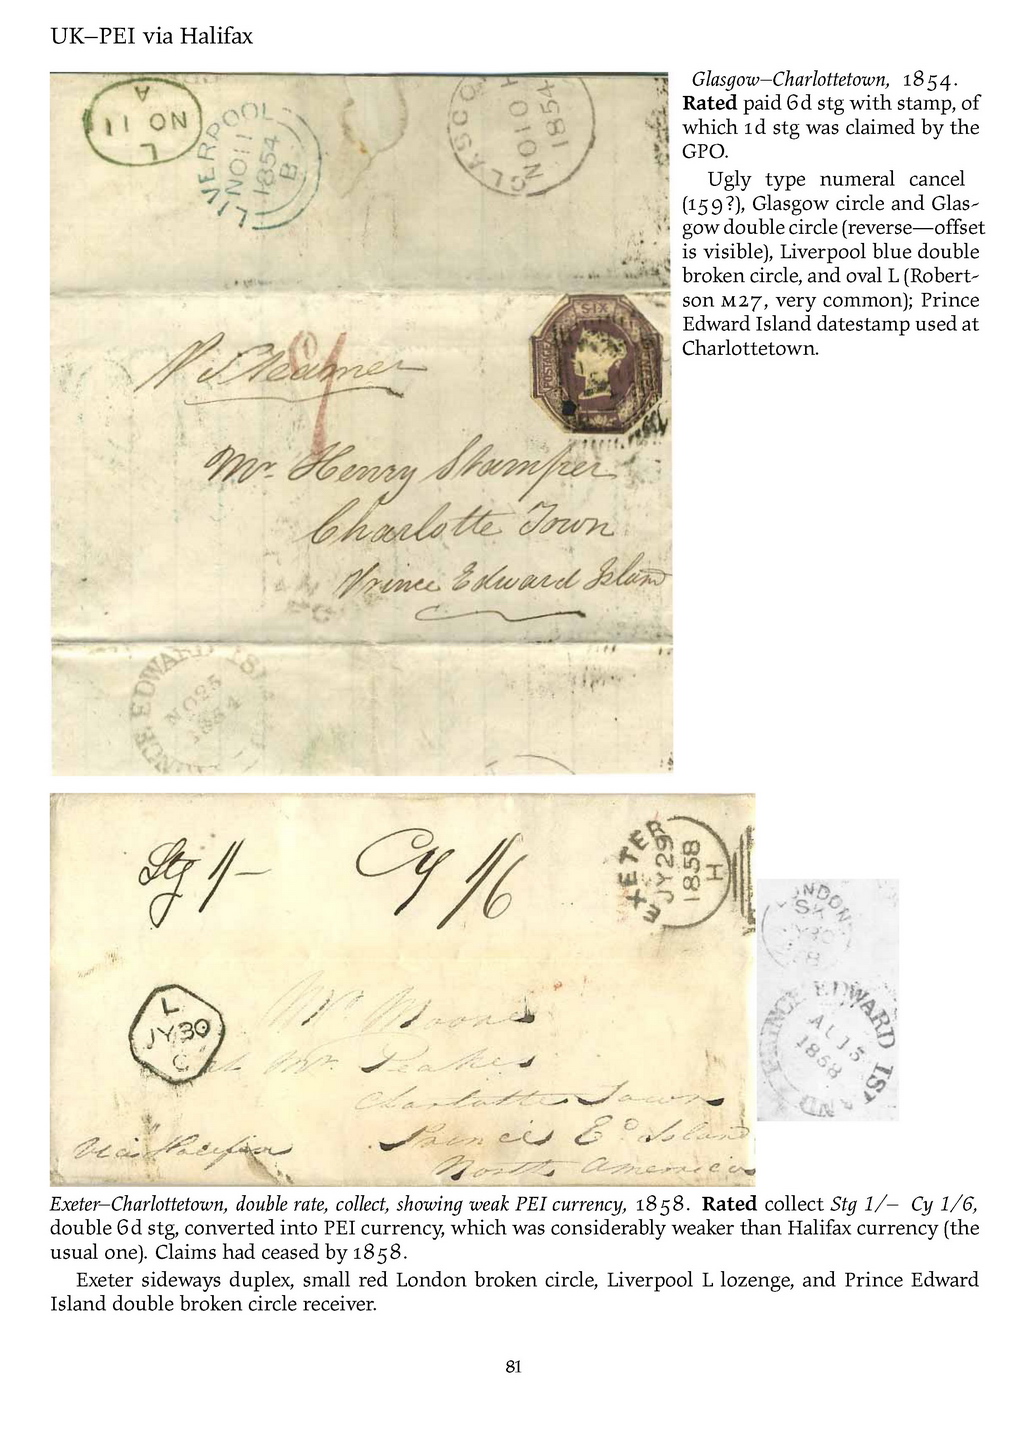 UK–PEI via Halifax
A
NO 11
L
LIVERPOOL
NO 11
1854
B
GLASGOW
NO 10
1854
H
Glasgow–Charlottetown, 1854.
Rated paid 6d stg with stamp, of
which 1d stg was claimed by the
GPO.
Ugly type numeral cancel
(159?), Glasgow circle and Glas-
gow double circle (reverse—offset
is visible), Liverpool blue double
broken circle, and oval L (Robert-
son M27, very common); Prince
Edward Island datestamp used at
Charlottetown.
SIX
POSTAGE
Steamer
1
Mr. Henry Stamper
Charlotte Town
Prince Edward Island
PRINCE EDWARD ISL
NO 25
1854
Stg 1/– Cy 1/6
EXETER
JY 29
1858
H
L
JY 30
C
Mr Moore
Mr. Peakes
Charlotte Town
Prince Ed Island
via Halifax
North America
LONDON
SK
JY 30
PRINCE EDWARD ISLAND
AU 15
1858
Exeter–Charlottetown, double rate, collect, showing weak PEI currency, 1858. Rated collect Stg 1/– Cy 1/6,
double 6d stg, converted into PEI currency, which was considerably weaker than Halifax currency (the
usual one). Claims had ceased by 1858.
Exeter sideways duplex, small red London broken circle, Liverpool L lozenge, and Prince Edward
Island double broken circle receiver.
81